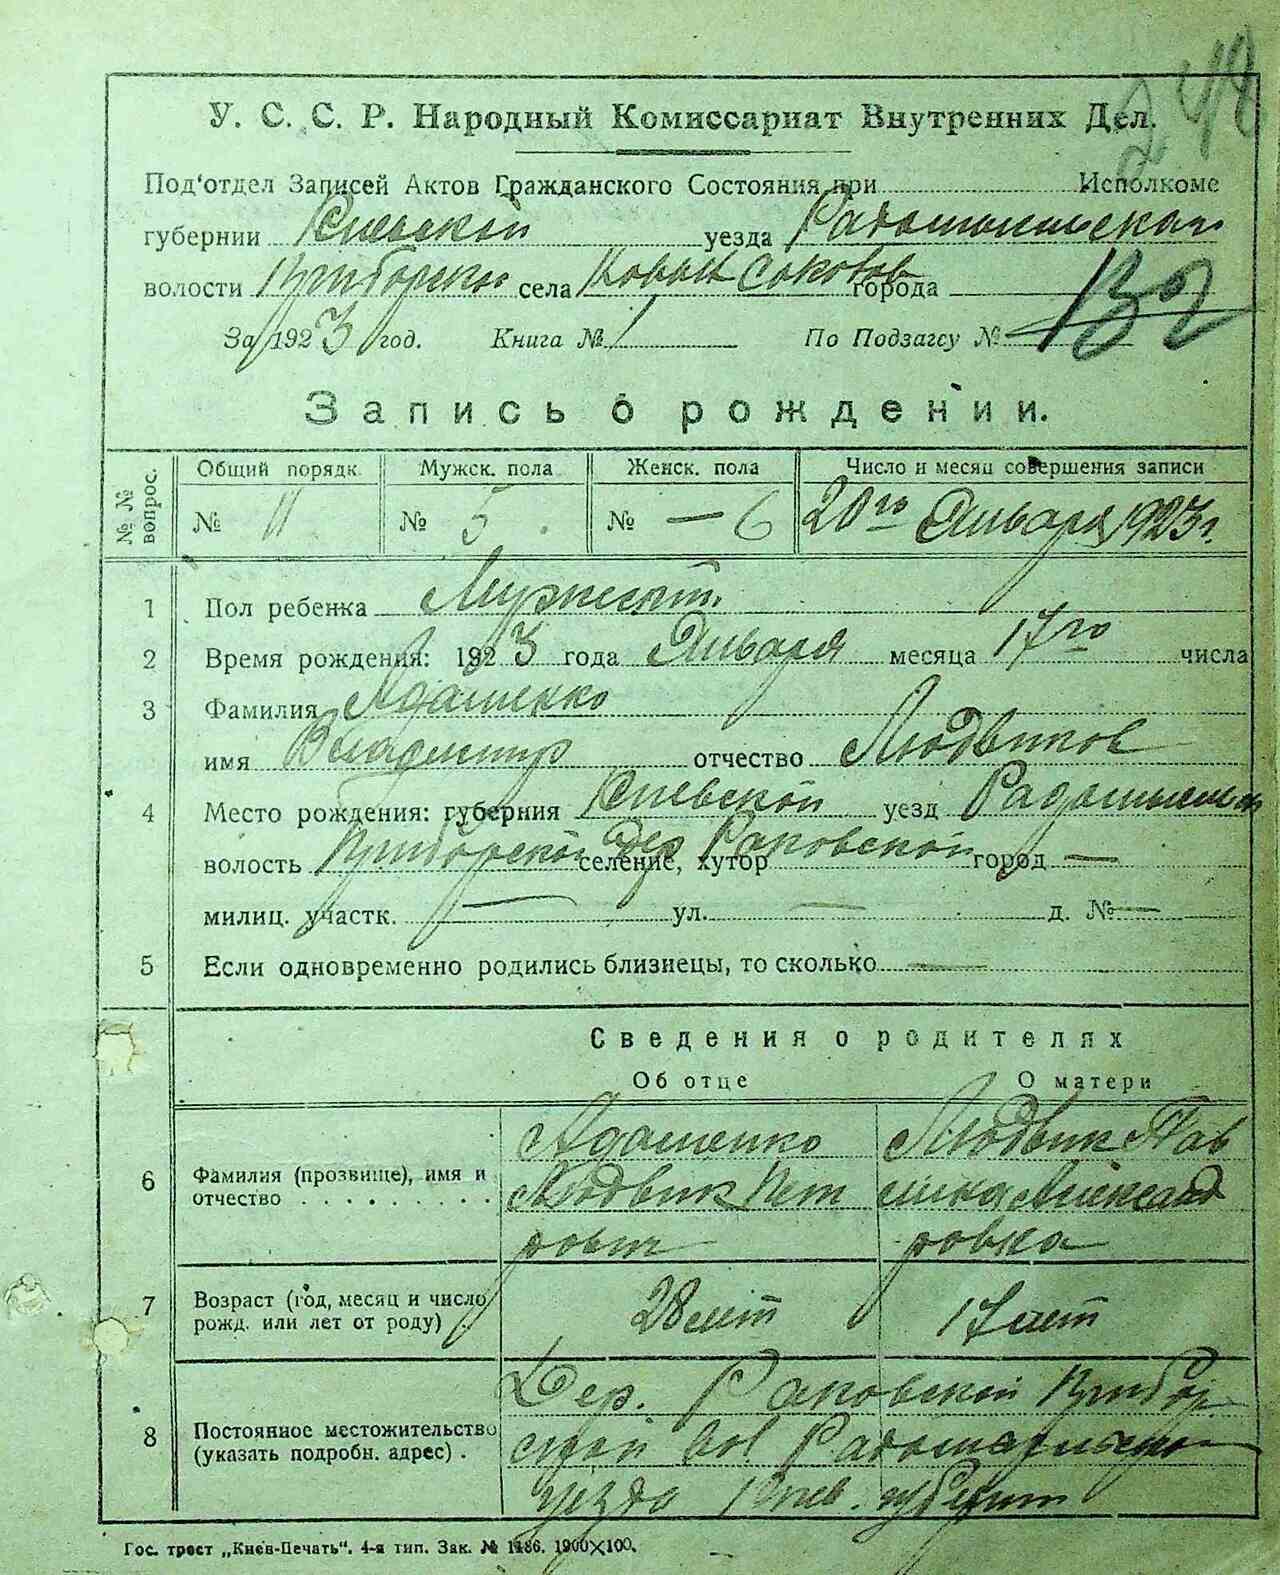 244
У. С. С. Р. Народный Комиссариат Внутренних Дел.
Под'отдел Записей Актов Гражданского Состояния при Исполкоме
губернии Киевской уезда Радомыльского
волости Приборской села Новых Соколов города
132
За 1923 год. Книга № 1 По Подзагсу №
Запись о рождении.
№ № вопрос. Общий порядк. Мужск. пола Женск. пола Число и месяц совершения записи
№ 11 № 5 № — 6 20го Января 1923 г.
1 Пол ребенка Мужской
2 Время рождения: 1923 года Января месяца 17го числа
3 Фамилия Адаменко
имя Владимир отчество Людвиков
4 Место рождения: губерния Киевской уезд Радомысльск
волость Приборской селение, хутор Дер Раковской город —
милиц. участк. — ул. — д. № —
5 Если одновременно родились близнецы, то сколько —
Сведения о родителях
Об отце О матери
6 Фамилия (прозвище), имя и отчество . . . . . . . . .
Адаменко Людвик Пет рович
Людвик Пав лина Александ ровна
7 Возраст (год, месяц и число рожд. или лет от роду) 28 лет 17 лет
8 Постоянное местожительство (указать подробн. адрес) .
Дер. Раковской Прибор
ской вол
уезда Киев. губернии
Гос. трест „Киев-Печать". 4-я тип. Зак. № 1186. 1900×100.